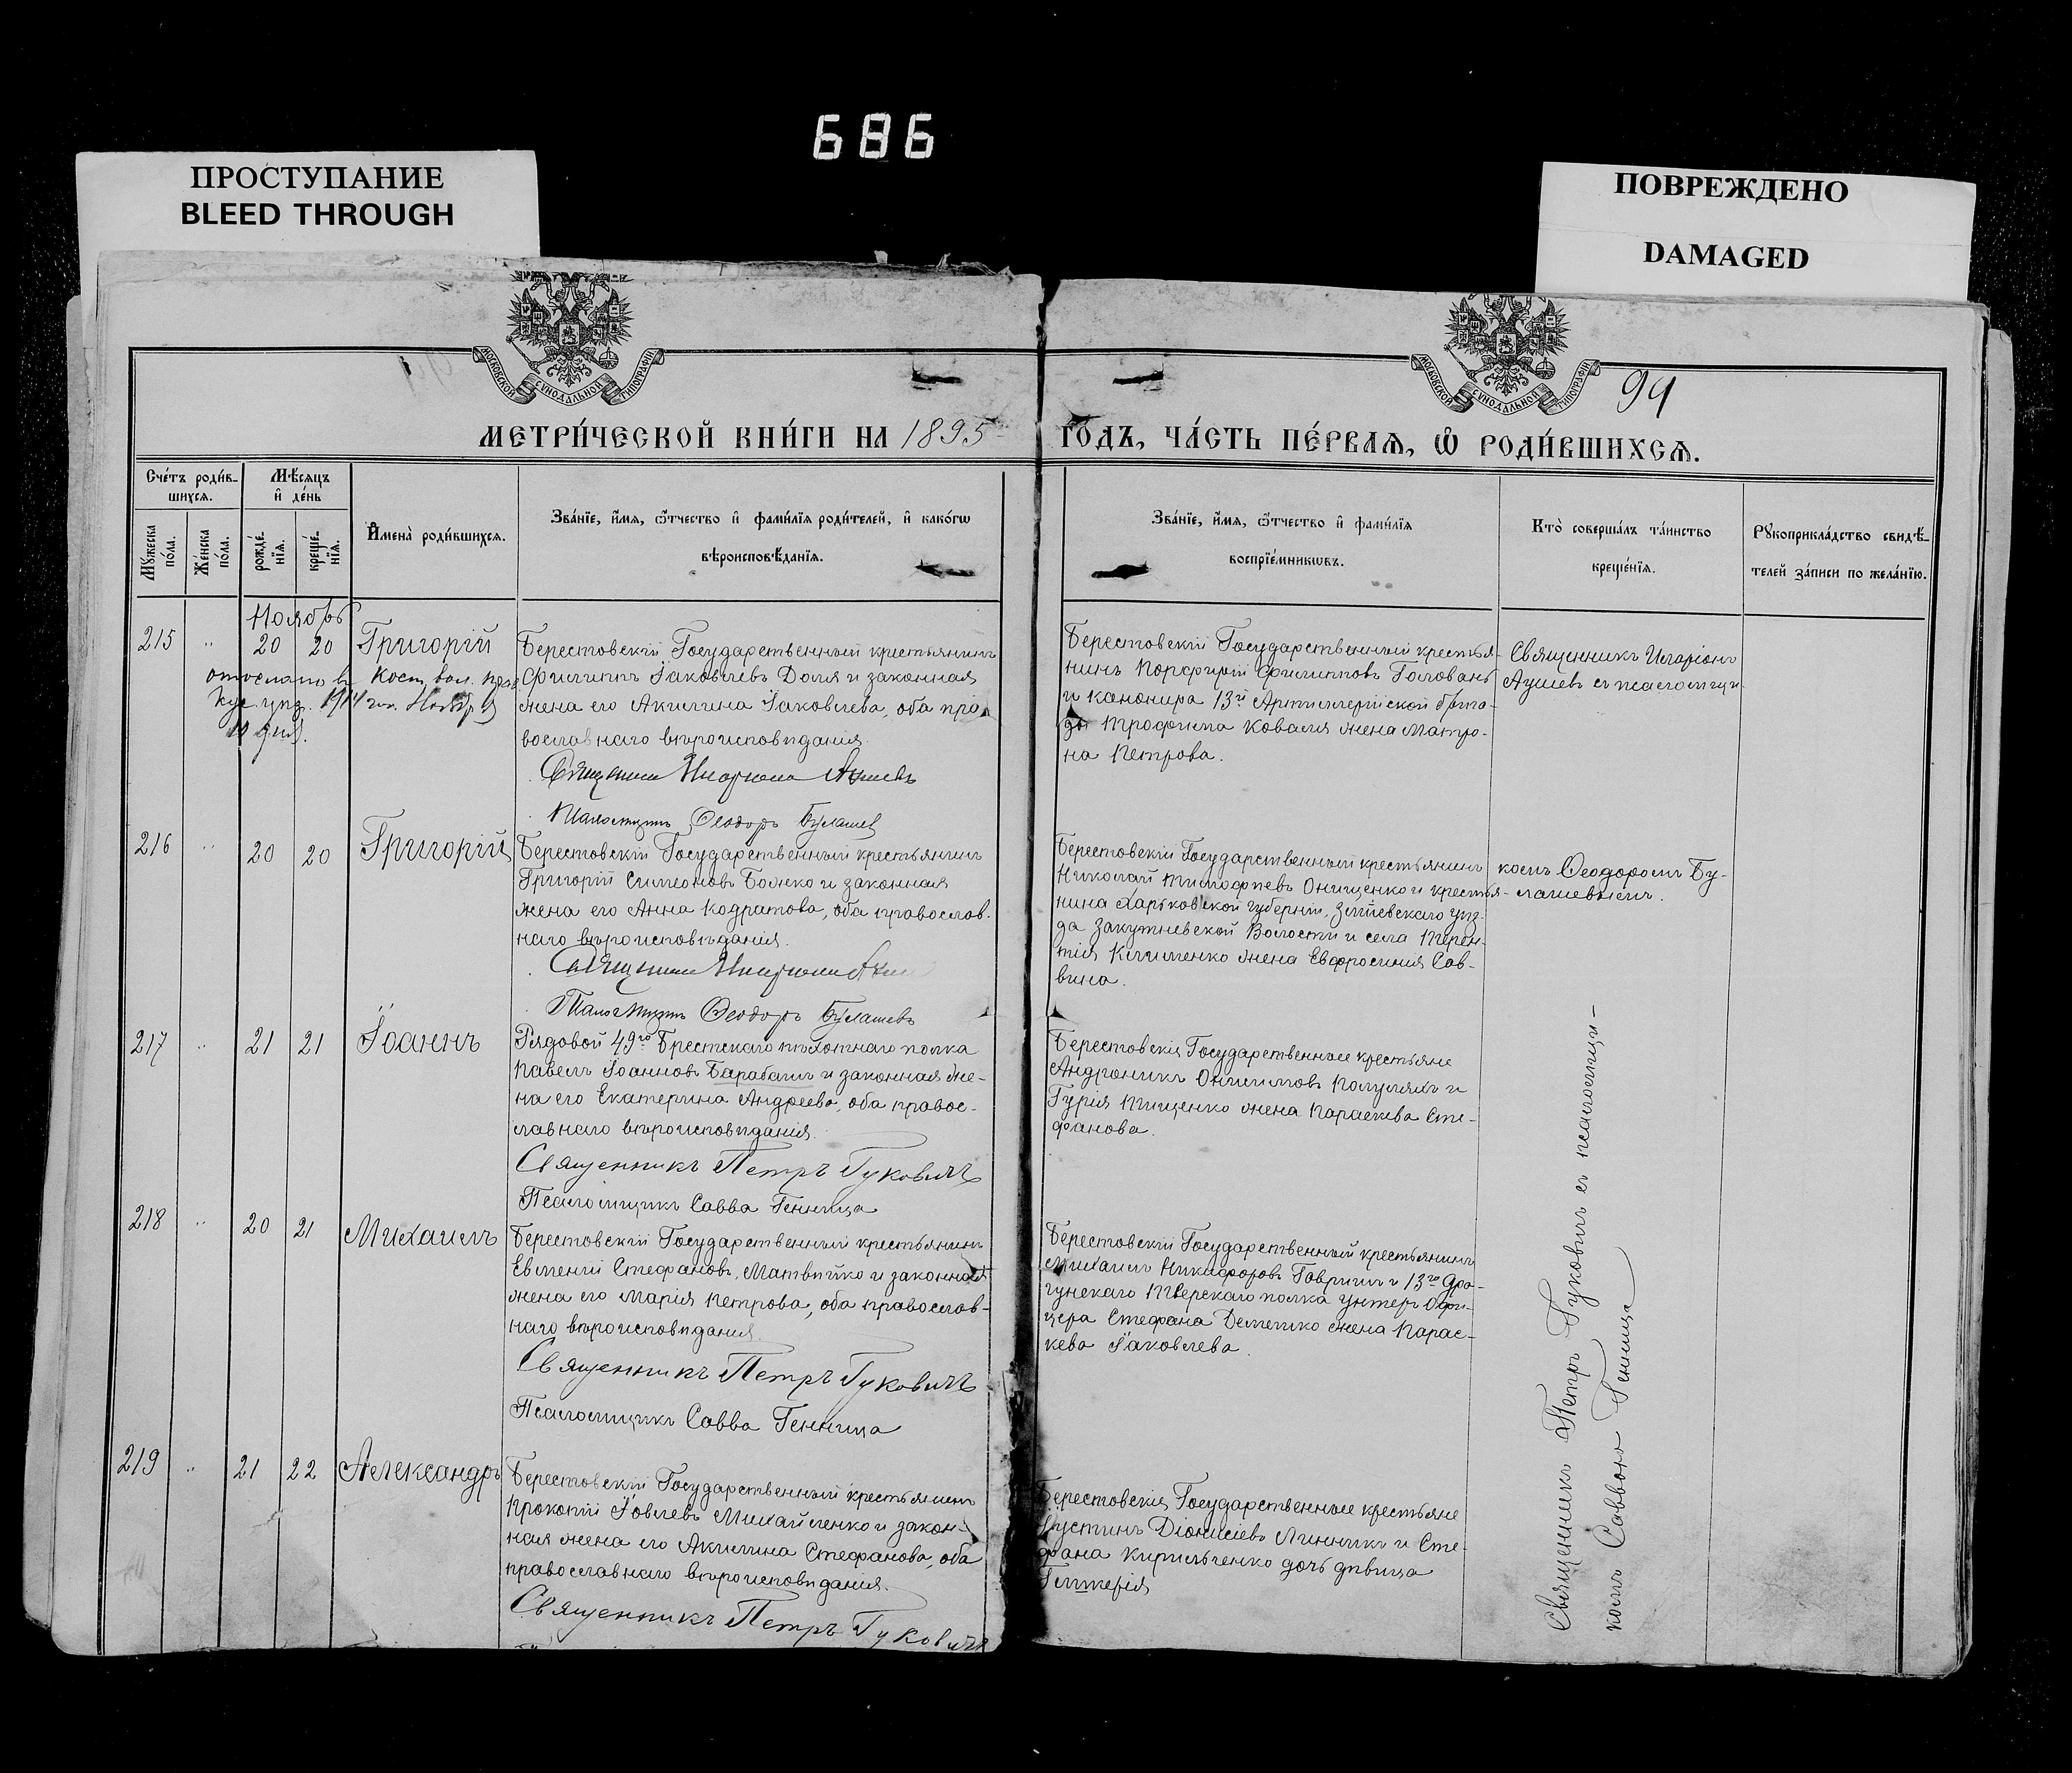 686
ПРОСТУПАНИЕ
BLEED THROUGH
ПОВРЕЖДЕНО
DAMAGED
МОСКОВСКОЙ СУНОДАЛЬНОЙ ТИПОГРАФІИ
МОСКОВСКОЙ СУНОДАЛЬНОЙ ТИПОГРАФІИ
94
МЕТРИ́ЧЕСКОЙ КНИ́ГИ НА 1895
ГО́ДЪ, ЧА́СТЬ ПЕ́РВАѦ, Ѡ҆ РОДИ́ВШИХСѦ.
Сче́тъ роди́в-
шихсѧ.
Мѣ́сѧцъ
и҆ де́нь
Мꙋ́жеска
по́ла.
Же́нска
по́ла.
рожде́-
нїѧ.
креще́-
нїѧ.
И҆мена̀ роди́вшихсѧ.
Зва́нїе, и҆́мѧ, ѻ҆́тчество и҆ фами́лїѧ роди́телей, и҆ како́гѡ
вѣроисповѣ́данїѧ.
Зва́нїе, и҆́мѧ, ѻ҆́тчество и҆ фами́лїѧ
воспрїе́мникѡвъ.
Кто̀ соверша́лъ та́инство
креще́нїѧ.
Рꙋкоприкла́дство свидѣ́-
телей за́писи по жела́нїю.
Ноябрь
215 " 20 20 Григорій
отослано въ Кост. вол. прав.
Куп. уѣз. 1914 год. Ноября
10 дня.
Берестовскій Государственный крестьянинъ
Филиппъ Іаковлевъ Доля и законная
жена его Акилина Іаковлева, оба пра-
вославнаго вѣроисповѣданія.
Священникъ Иларіонъ
Псаломщикъ Ѳеодоръ Булашев
Берестовскій Государственный крестья-
нинъ Порфирій Филипповъ Головань
и канонира 13й Артиллерійской брига-
ды Трофима Коваля жена Матро-
на Петрова.
Священникъ Иларіонъ
съ псаломщи-
216 " 20 20 Григорій
Берестовскій Государственный крестьянинъ
Григорій Симеоновъ Боянко и законная
жена его Анна Кодратова, оба православ-
наго вѣроисповѣданія.
Священникъ Иларіонъ
Псаломщикъ Ѳеодоръ Булашевъ
Берестовскій Государственный крестьянинъ
Николай Тимофѣевъ Онищенко и крестья-
нина Харьковской губерніи, Зміевскаго уѣз-
да Закутневской Волости и села Терен-
тія Клименко жена Евфросинія Сав-
вина.
комъ Ѳеодоромъ Бу-
лашевымъ.
217 " 21 21 Іоаннъ
Рядовой 49го Брестскаго пѣхотнаго полка
Павелъ Іоанновъ Барабашъ и законная же-
на его Екатерина Андреева, оба правос-
лавнаго вѣроисповѣданія.
Священникъ Петръ Гуковичъ
Псаломщикъ Савва Генница
Берестовскіе Государственные крестьяне
Андроникъ Онисимовъ Полуляхъ и
Гурія Тищенко жена Параскева Сте-
фанова.
218 " 20 21 Михаилъ
Берестовскій Государственный крестьянинъ
Евменій Стефановъ Матвійко и законная
жена его Марія Петрова, оба православ-
наго вѣроисповѣданія.
Священникъ Петръ Гуковичъ
Псаломщикъ Савва Генница
Берестовскій Государственный крестьянинъ
Михаилъ Никифоровъ Гавришъ и 13го Дра-
гунскаго полка унтеръ Офи-
цера Стефана Деметко жена Парас-
кева Іаковлева.
219 " 21 22 Александръ
Берестовскій Государственный крестьянинъ
Прокопій Іовлевъ Михайленко и закон-
ная жена его Акилина Стефанова, оба
православнаго вѣроисповѣданія.
Священникъ Петръ Гуковичъ
Берестовскіе Государственные крестьяне
Іустинъ Діонисіевъ Линникъ и Сте-
фана Кирильченко дочь дѣвица
Гликерія
Священникъ Петръ Гуковичъ съ псаломщи-
комъ Саввою Генница